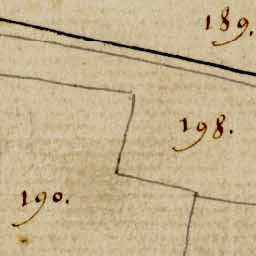 189.
198.
190.